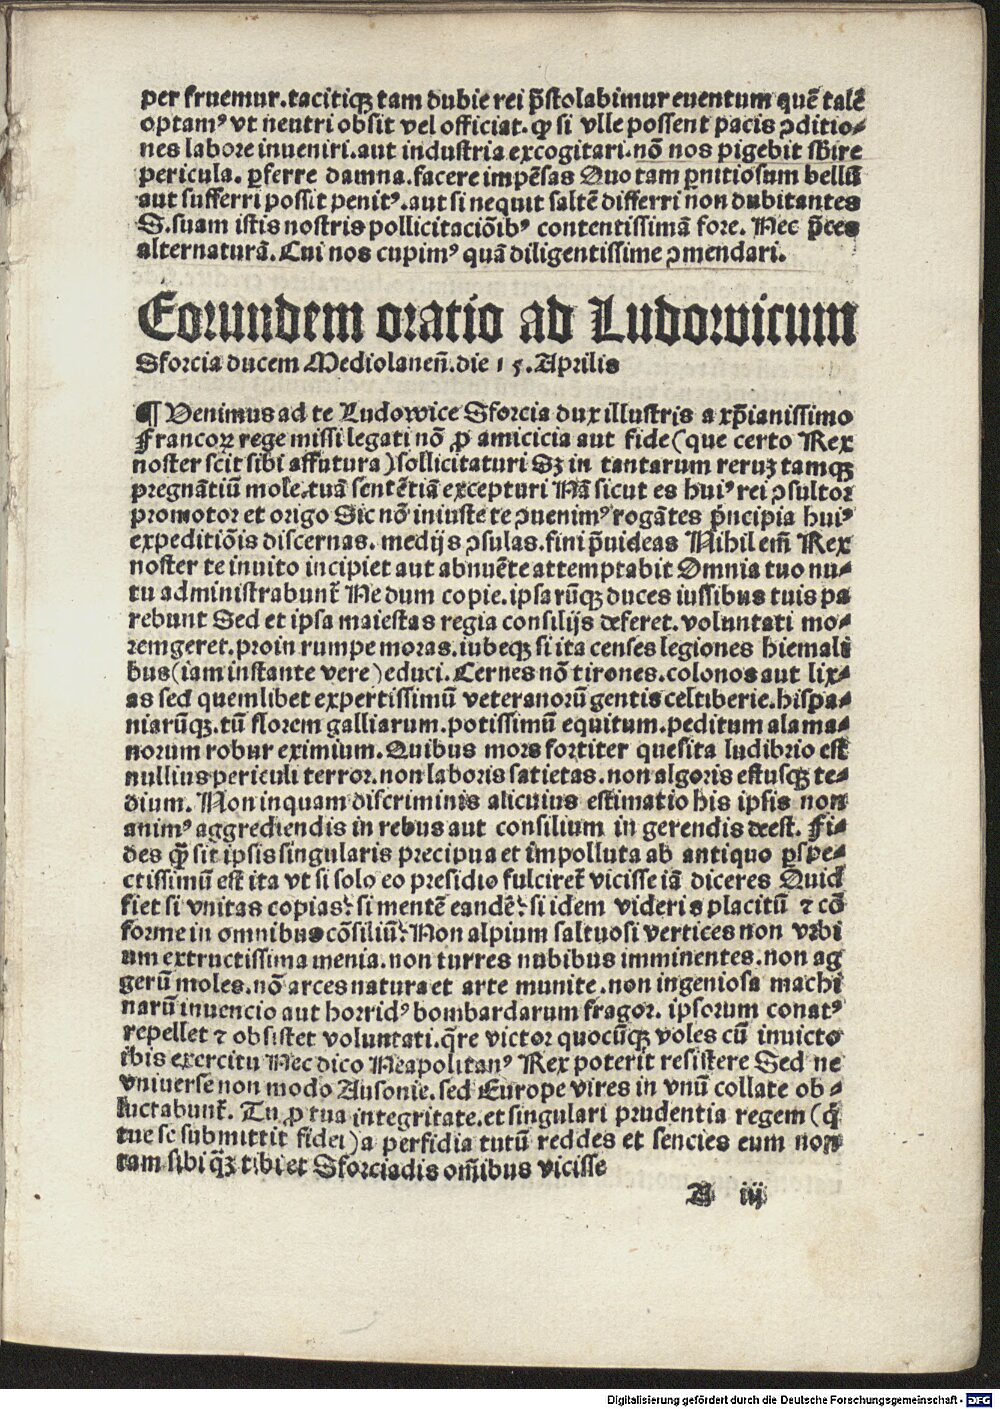 per fruemur.tacitiqꝫ tam dubie rei p̄stolabimur euentum quē talē
optamꝰ vt neutri obsit vel officiat. ꝙ si vlle possent pacis ↄditio⸗
nes labore inueniri.aut industria excogitari.nō nos pigebit sb̄ire
pericula. ꝑferre damna.facere impēsas Quo tam ꝑnitiosum bellū
aut sufferri possit penitꝰ.aut si nequit saltē differri non dubitantes
S.suam istis nostris pollicitaciōibꝰ contentissimā fore. Nec p̄ces
alternaturā. Cui nos cupimꝰ quā diligentissime ↄmendari.
Eorundem oratio ad Ludovicum
Sforcia ducem Mediolaneñ.die 15.Aprilis
¶ Venimus ad te Ludowice Sforcia dux illustris a xp̄ianissimo
Francoꝝ rege missi legati nō ꝓ amicicia aut fide (que certo Rex
noster scit sibi affutura) sollicitaturi Sꝫ in tantarum reruꝫ tamqꝫ
pregnātiū mole.tuā sentētiā excepturi Nā sicut es huiꝰ rei ↄsultor
promotor et origo Sic nō iniuste te ↄuenimꝰ rogātes p̄ncipia huiꝰ
expeditiōis discernas. medijs ↄsulas.fini p̄uideas Nihil em̄ Rex
noster te inuito incipiet aut abnuēte attemptabit Omnia tuo nu⸗
tu administrabunt̄ Ne dum copie.ipsarūqꝫ duces iussibus tuis pa
rebunt Sed et ipsa maiestas regia consilijs deferet.voluntati mo⸗
remgeret.proin rumpe moras.iubeqꝫ si ita censes legiones hiemali
bus (iam instante vere) educi. Cernes nō tirones.colonos aut lix⸗
as sed quemlibet expertissimū veteranorū gentis celtiberie.hispa⸗
niarūqꝫ.tū florem galliarum.potissimū equitum.peditum alama⸗
norum robur eximium. Quibus mors fortiter quesita ludibrio est
nullius periculi terror.non laboris satietas.non algoris estusqꝫ te⸗
dium. Non inquam discriminis alicuius estimatio his ipsis non
animꝰ aggrediendis in rebus aut consilium in gerendis deest. Fi⸗
des q̄ꝫ sit ipsis singularis precipua et īmpolluta ab antiquo ꝑspe⸗
ctissimū est ita vt si solo eo presidio fulciret̄ vicisse iā diceres Quid
fiet si vnitas copias? si mentē eandē? si idem videris placitū ⁊ cō
forme in omnibus cōsiliū? Non alpium saltuosi vertices non vrbi
um extructissima menia.non turres nubibus imminentes.non ag
gerū moles.nō arces natura et arte munite.non ingeniosa machi
narū inuencio aut horridꝰ bombardarum fragor. ipsorum conatꝰ
repellet ⁊ obsistet voluntati.q̄re victor quocūqꝫ voles cū inuicto
ibis exercitu Nec dico Neapolitanꝰ Rex poterit resistere Sed ne
vniuerse non modo Ausonie.sed Europe vires in vnū collate ob⸗
luctabunt̄. Tu ꝓ tua integritate.et singulari prudentia regem (q̄
tue se submittit fidei) a perfidia tutū reddes et sencies eum non
tam sibi q̄ꝫ tibi et Sforciadis om̄ibus vicisse
A iij
Digitalisierung gefördert durch die Deutsche Forschungsgemeinschaft - DFG